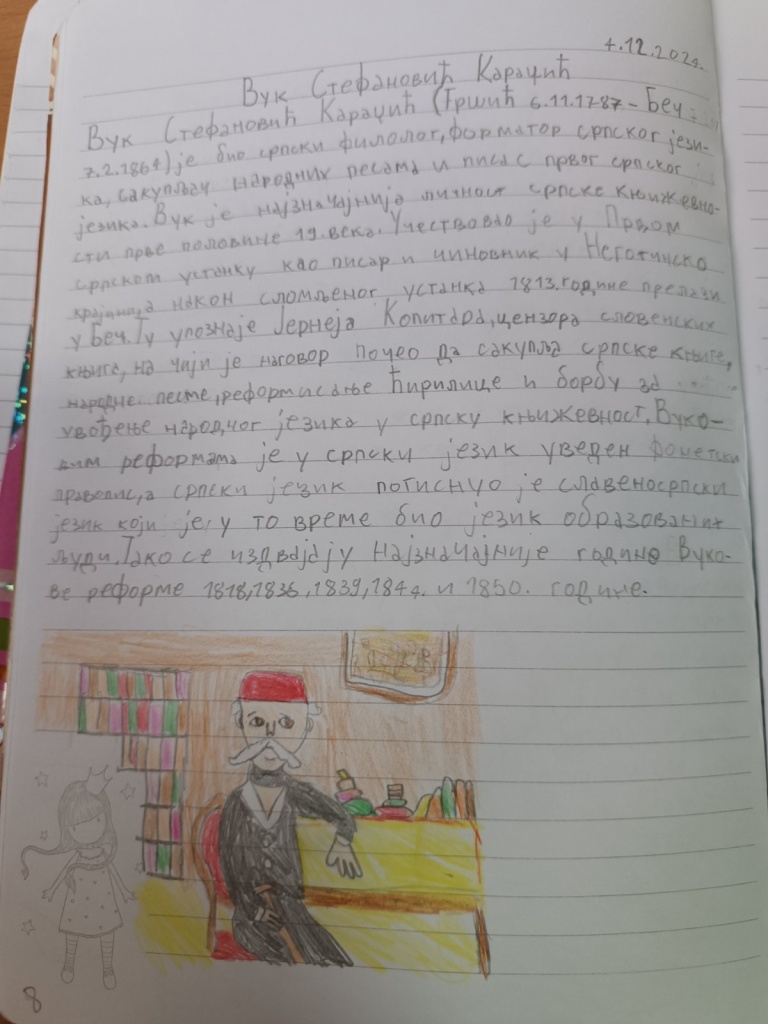 4.12.2024.
Вук Стефановић Караџић
Вук Стефановић Караџић (Тршић 6.11.1787 - Беч
7.2.1864) је био српски филолог, форматор српског јези-
ка, сакупљач народних песама и писас првог српског
језика. Вук је најзначајнија личност српске књижевно-
сти прве половине 19. века. Учествовао је у Првом
српском устанку као писар и чиновник у Неготинско
након сломљеног устанка 1813. године прелази
у Беч. Ту упознаје Јернеја Копитара, цензора словенских
књига, на чији је наговор почео да сакупља српске књиге,
народне песме, реформисање ћирилице и борбу за
увођење народног језика у српску књижевност. Вуко-
вим реформама је у српски језик уведен фонетски
правопис, а српски језик потиснуо је славеносрпски
језик који је у то време био језик образованих
људи. Тако се издвајају најзначајније године Вуко-
ве реформе 1818, 1836, 1839, 1844. и 1850. године.
8